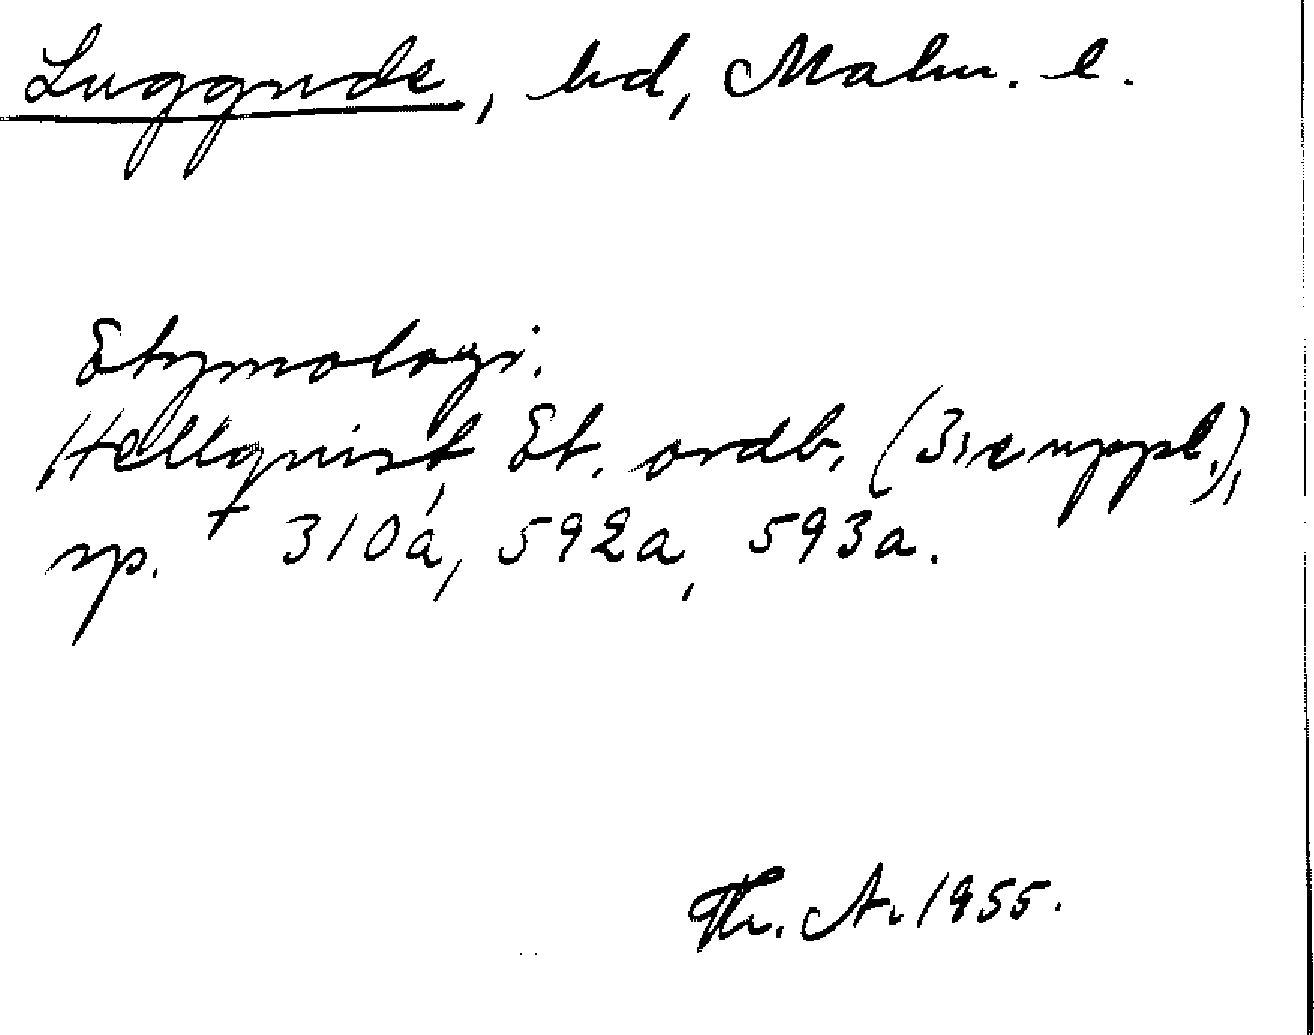 Luggude, hd, Malm. l.
Etymologi.
Hellquist, Et. ordb. (3:e uppl.),
sp. 310a, 592a, 593a.
Th. A. 1955.